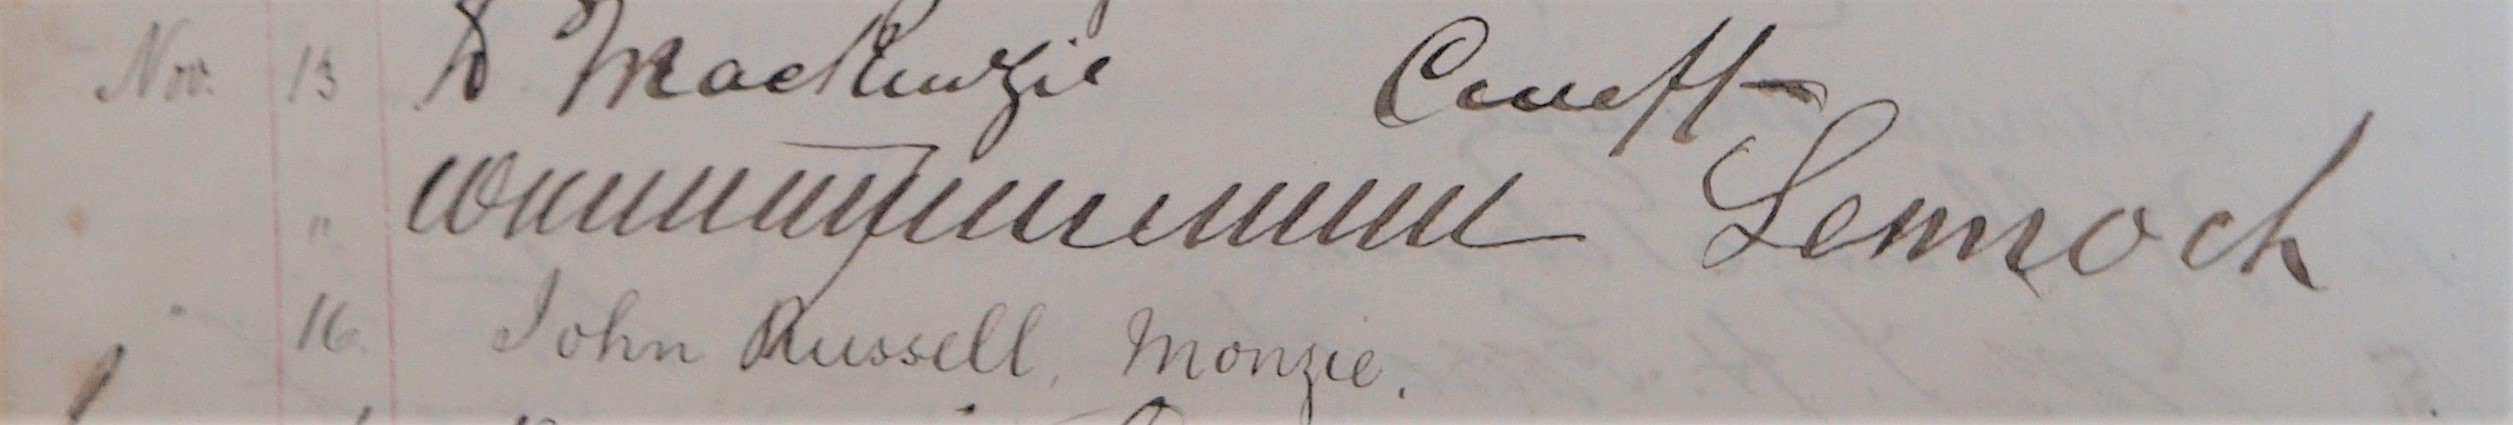 Nov. 13 D Mackenzie Crieff
" Lennoch
" 16. John Russell, Monzie.